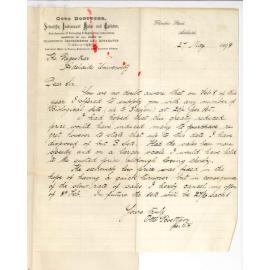 Otto Boettger,
Scientific Instrument Maker and Optician,
Flinders Street,
Adelaide
2nd May 1894
The Registrar
Adelaide University
Dear Sir
You are no doubt aware that on Feby 8 of this
year I offered to supply you with any number of
Biological sets
I had hoped that this greatly reduced
price would have induced many to purchase
but to this date I have
disposed of but 3 Sets. Had the sales been more
speedy and on a larger scale I would have held
to the quoted price although losing slowly.
The extremely low price was fixed in the
hopes of having a quick turnover but in consequence
of the slow rate of sales I hereby cancel my offer
of 8th Feb. In future the sets will be 27/6 each
Yours truly
Otto Boettger